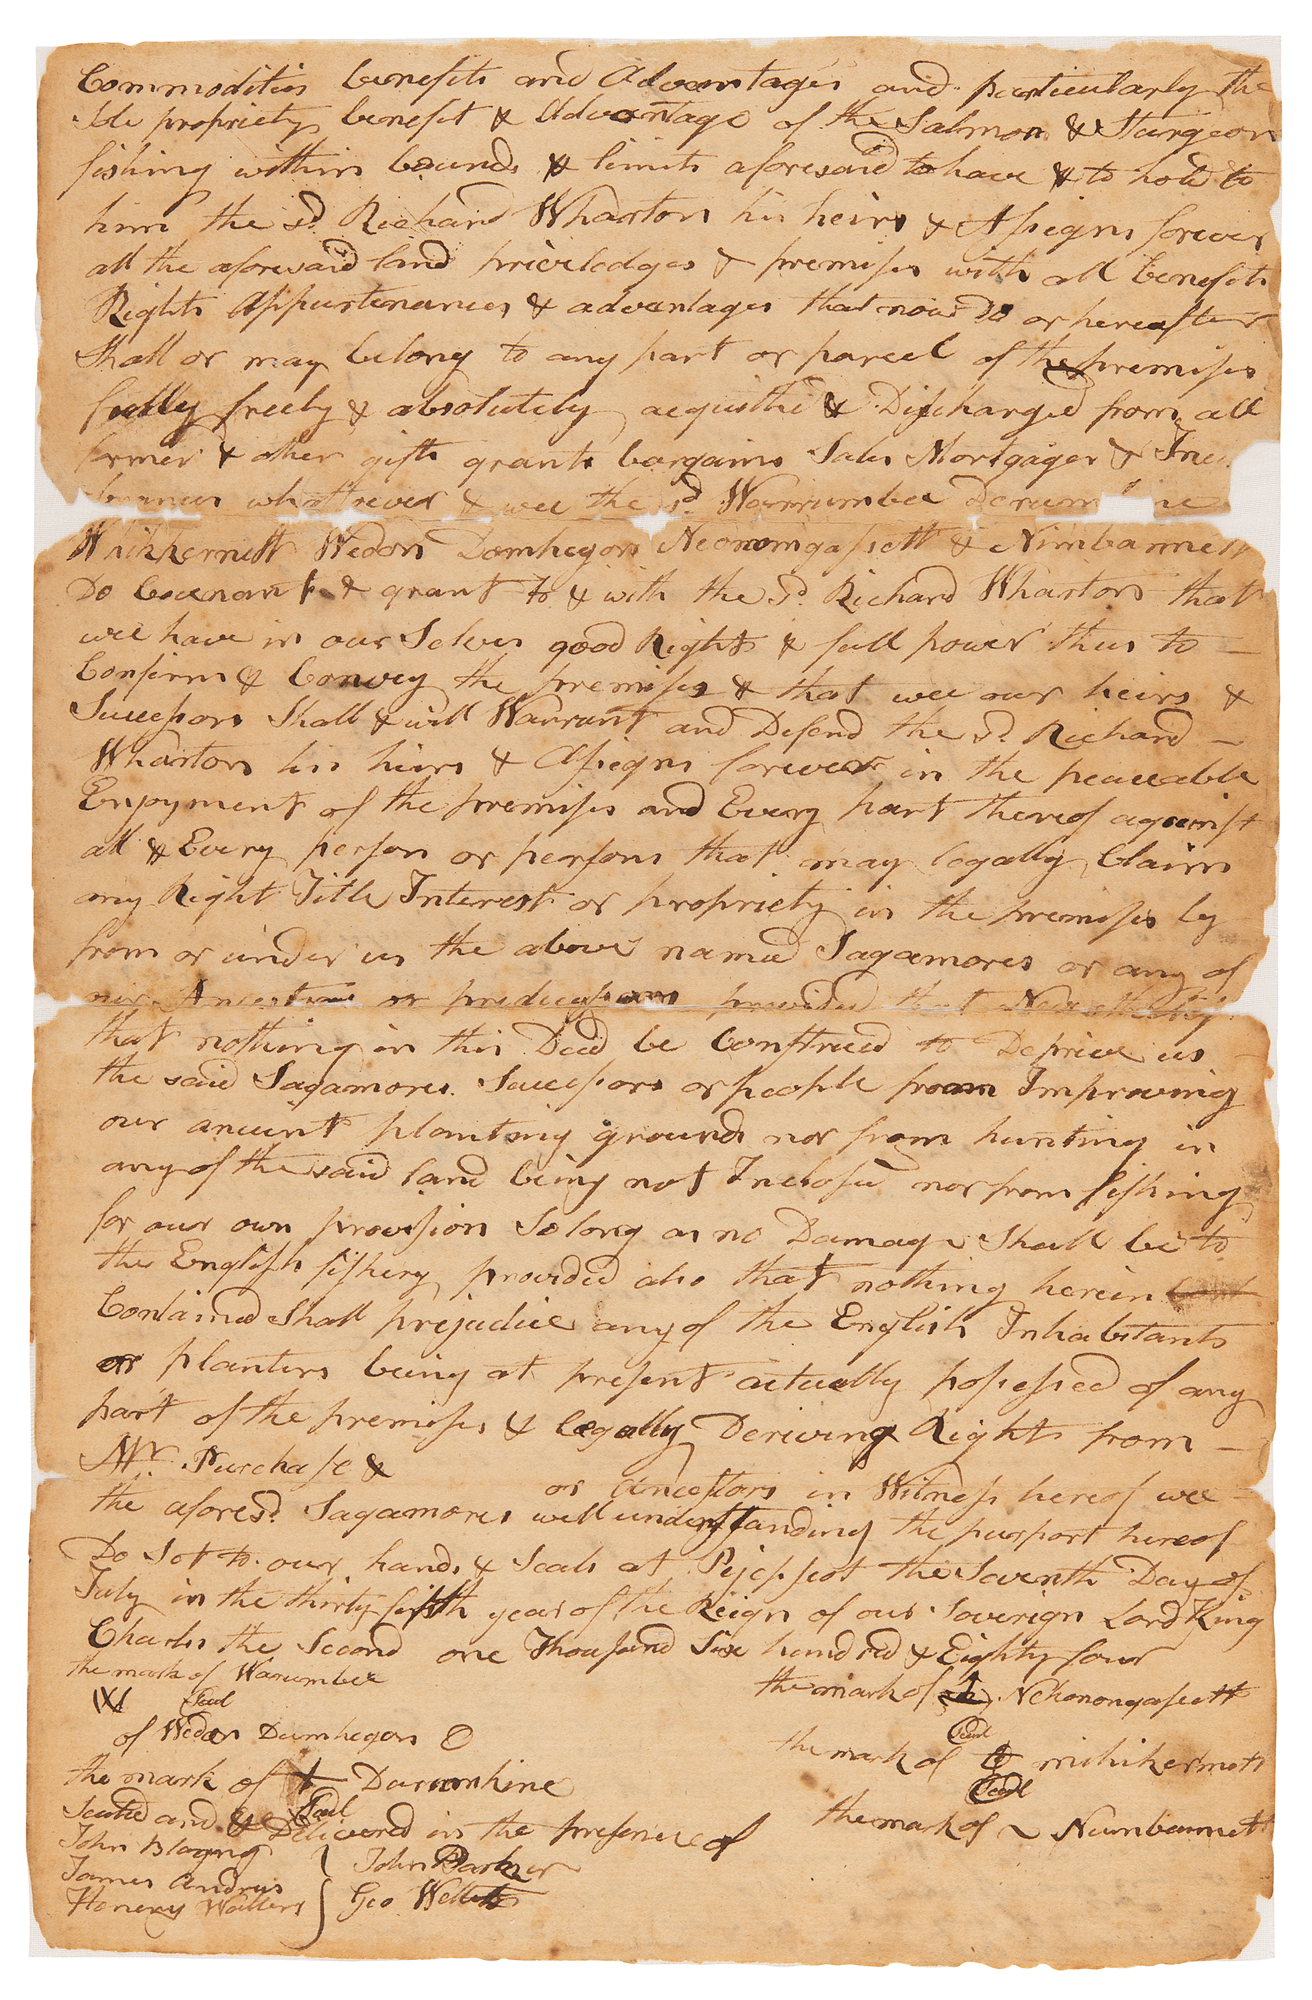 Commodities benefits and Advantages and particularly the
Sole propriety benefit & Advantage of the Salmon & Sturgeon
fishing within bounds & limits aforesaid to have & to hold to
him the sd. Richard Wharton his heirs & Assigns forever
all the aforesaid land priveledges & premises with all benefits
Rights Appurtenances & advantages that now do or hereafter
Shall or may belong to any part or parcel of the premises
fully freely & absolutely acquitted & Discharged from all
former & other gifts grants bargains Sales Mortgages & Incu
whatsoever & wee the sd. Warrumbee
Whikkermett Wedon Domhegon Neonongassett & Nimbannett
Do Covenant & grant to & with the sd. Richard Wharton that
wee have in our Selves good Right & full power thus to
Confirm & Convey the premises & that wee our heirs &
Successors Shall & will Warrant and Defend the sd. Richard
Wharton his heirs & Assigns forever in the peaceable
Enjoyment of the premises and Every part thereof against
all & Every person or persons that may legally Claim
any Right Title Interest or propriety in the premises by
from or under us the above named Sagamores or any of
our Ancestors or predecessors provided that Nevertheless
that nothing in this Deed be Construed to Deprive us
the said Sagamores Successors or people from Improving
our ancient planting grounds nor from hunting in
any of the said land being not Inclosed nor from fishing
for our own provision So long as no Damage Shall be to
the English fishery provided also that nothing herein
Contained Shall prejudice any of the English Inhabitants
or planters being at present actually possessed of any
part of the premises & legally Deriving Rights from
Mr. Purchase & or Ancestors in Witness hereof wee
the aforesd. Sagamores well understanding the purport hereof
Do Set to our hands & Seals at Pejepscot the Seventh Day of
July in the thirty fifth year of the Reign of our Soverign Lord King
Charles the Second one Thousand Six hundred & Eighty four
the mark of Warumbee
Seal
the mark of Nehonongassett
Seal
of Weden Dumhegon O
the mark of mihikermett
Seal
the mark of Darumkine
Seal
the mark of Numbannett
Sealed and Delivered in the presence of
John Blayny John Parker
James Andrus
Henery Walters Geo Wellets